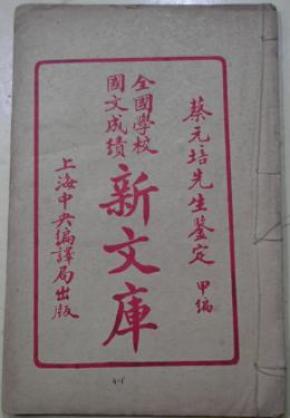 蔡元培先生鉴定 甲编
全國學校
國文成績
新文庫
上海中央編譯局出版